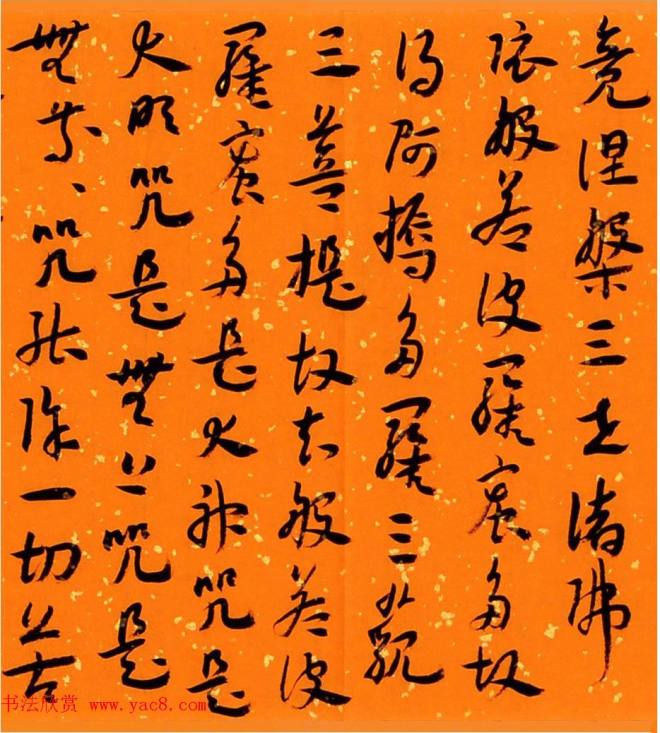 竟涅槃三世諸佛
依般若波羅蜜多故
得阿耨多羅三藐
三菩提故知般若波
羅蜜多是大神咒是
大明咒是無上咒是
無等、咒能除一切苦
书法欣赏 www.yac8.com